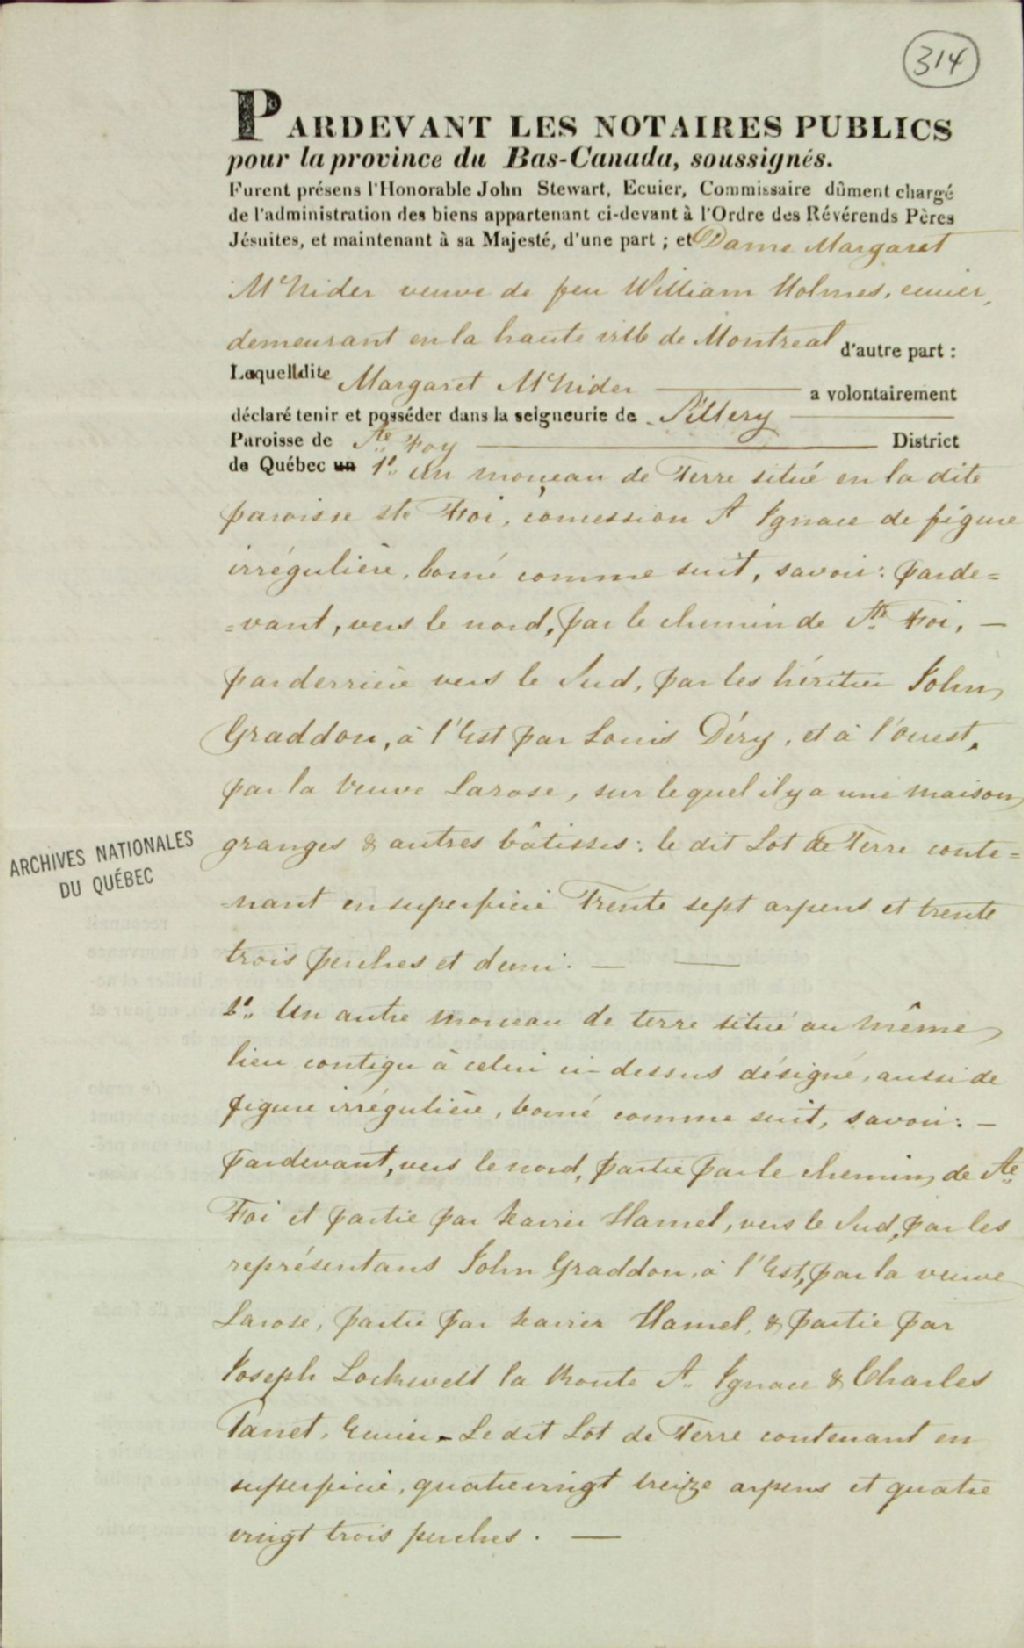 314
PARDEVANT LES NOTAIRES PUBLICS
pour la province du Bas-Canada, soussignés.
Furent présens l'Honorable John Stewart, Ecuier, Commissaire dûment chargé
de l'administration des biens appartenant ci-devant à l'Ordre des Révérends Pères
Jésuites, et maintenant à sa Majesté, d'une part ; et Dame Margaret
McNider veuve de feu William Holmes, ecuier,
demeurant en la haute ville de Montreal d'autre part :
Laquelldite Margaret McNider a volontairement
déclaré tenir et posséder dans la seigneurie de Sillery
Paroisse de Ste Foy District
de Québec un 1o. Un morceau de Terre situé en la dite
paroisse Ste Foi, concession St Ignace de figure
irrégulière, borné comme suit, savoir : parde=
=vant, vers le nord, par le chemin de Ste Foi, —
parderrière vers le Sud, par les héritiers John
Graddon, à l'Est par Louis Déry, et à l'ouest,
par la veuve Larose, sur lequel il y a une maison
granges & autres bâtisses : le dit Lot de Terre conte=
ARCHIVES NATIONALES
DU QUÉBEC
=nant en superficie Trente sept arpens et trente
trois perches et demi. — —
2o. Un autre morceau de terre situé au même
lieu contigu à celui ci-dessus désigné, aussi de
figure irrégulière, borné comme suit, savoir : —
Pardevant, vers le nord, partie par le chemin de Ste
Foi et partie par Xavier Hamel, vers le Sud, par les
représentans John Graddon, à l'Est, par la veuve
Larose, partie par Xavier Hamel, & partie par
Joseph Lockwell la Route St Ignace & Charles
Panet, Ecuier — Le dit Lot de Terre contenant en
superficie, quatrevingt treize arpens et quatre
vingt trois perches. —